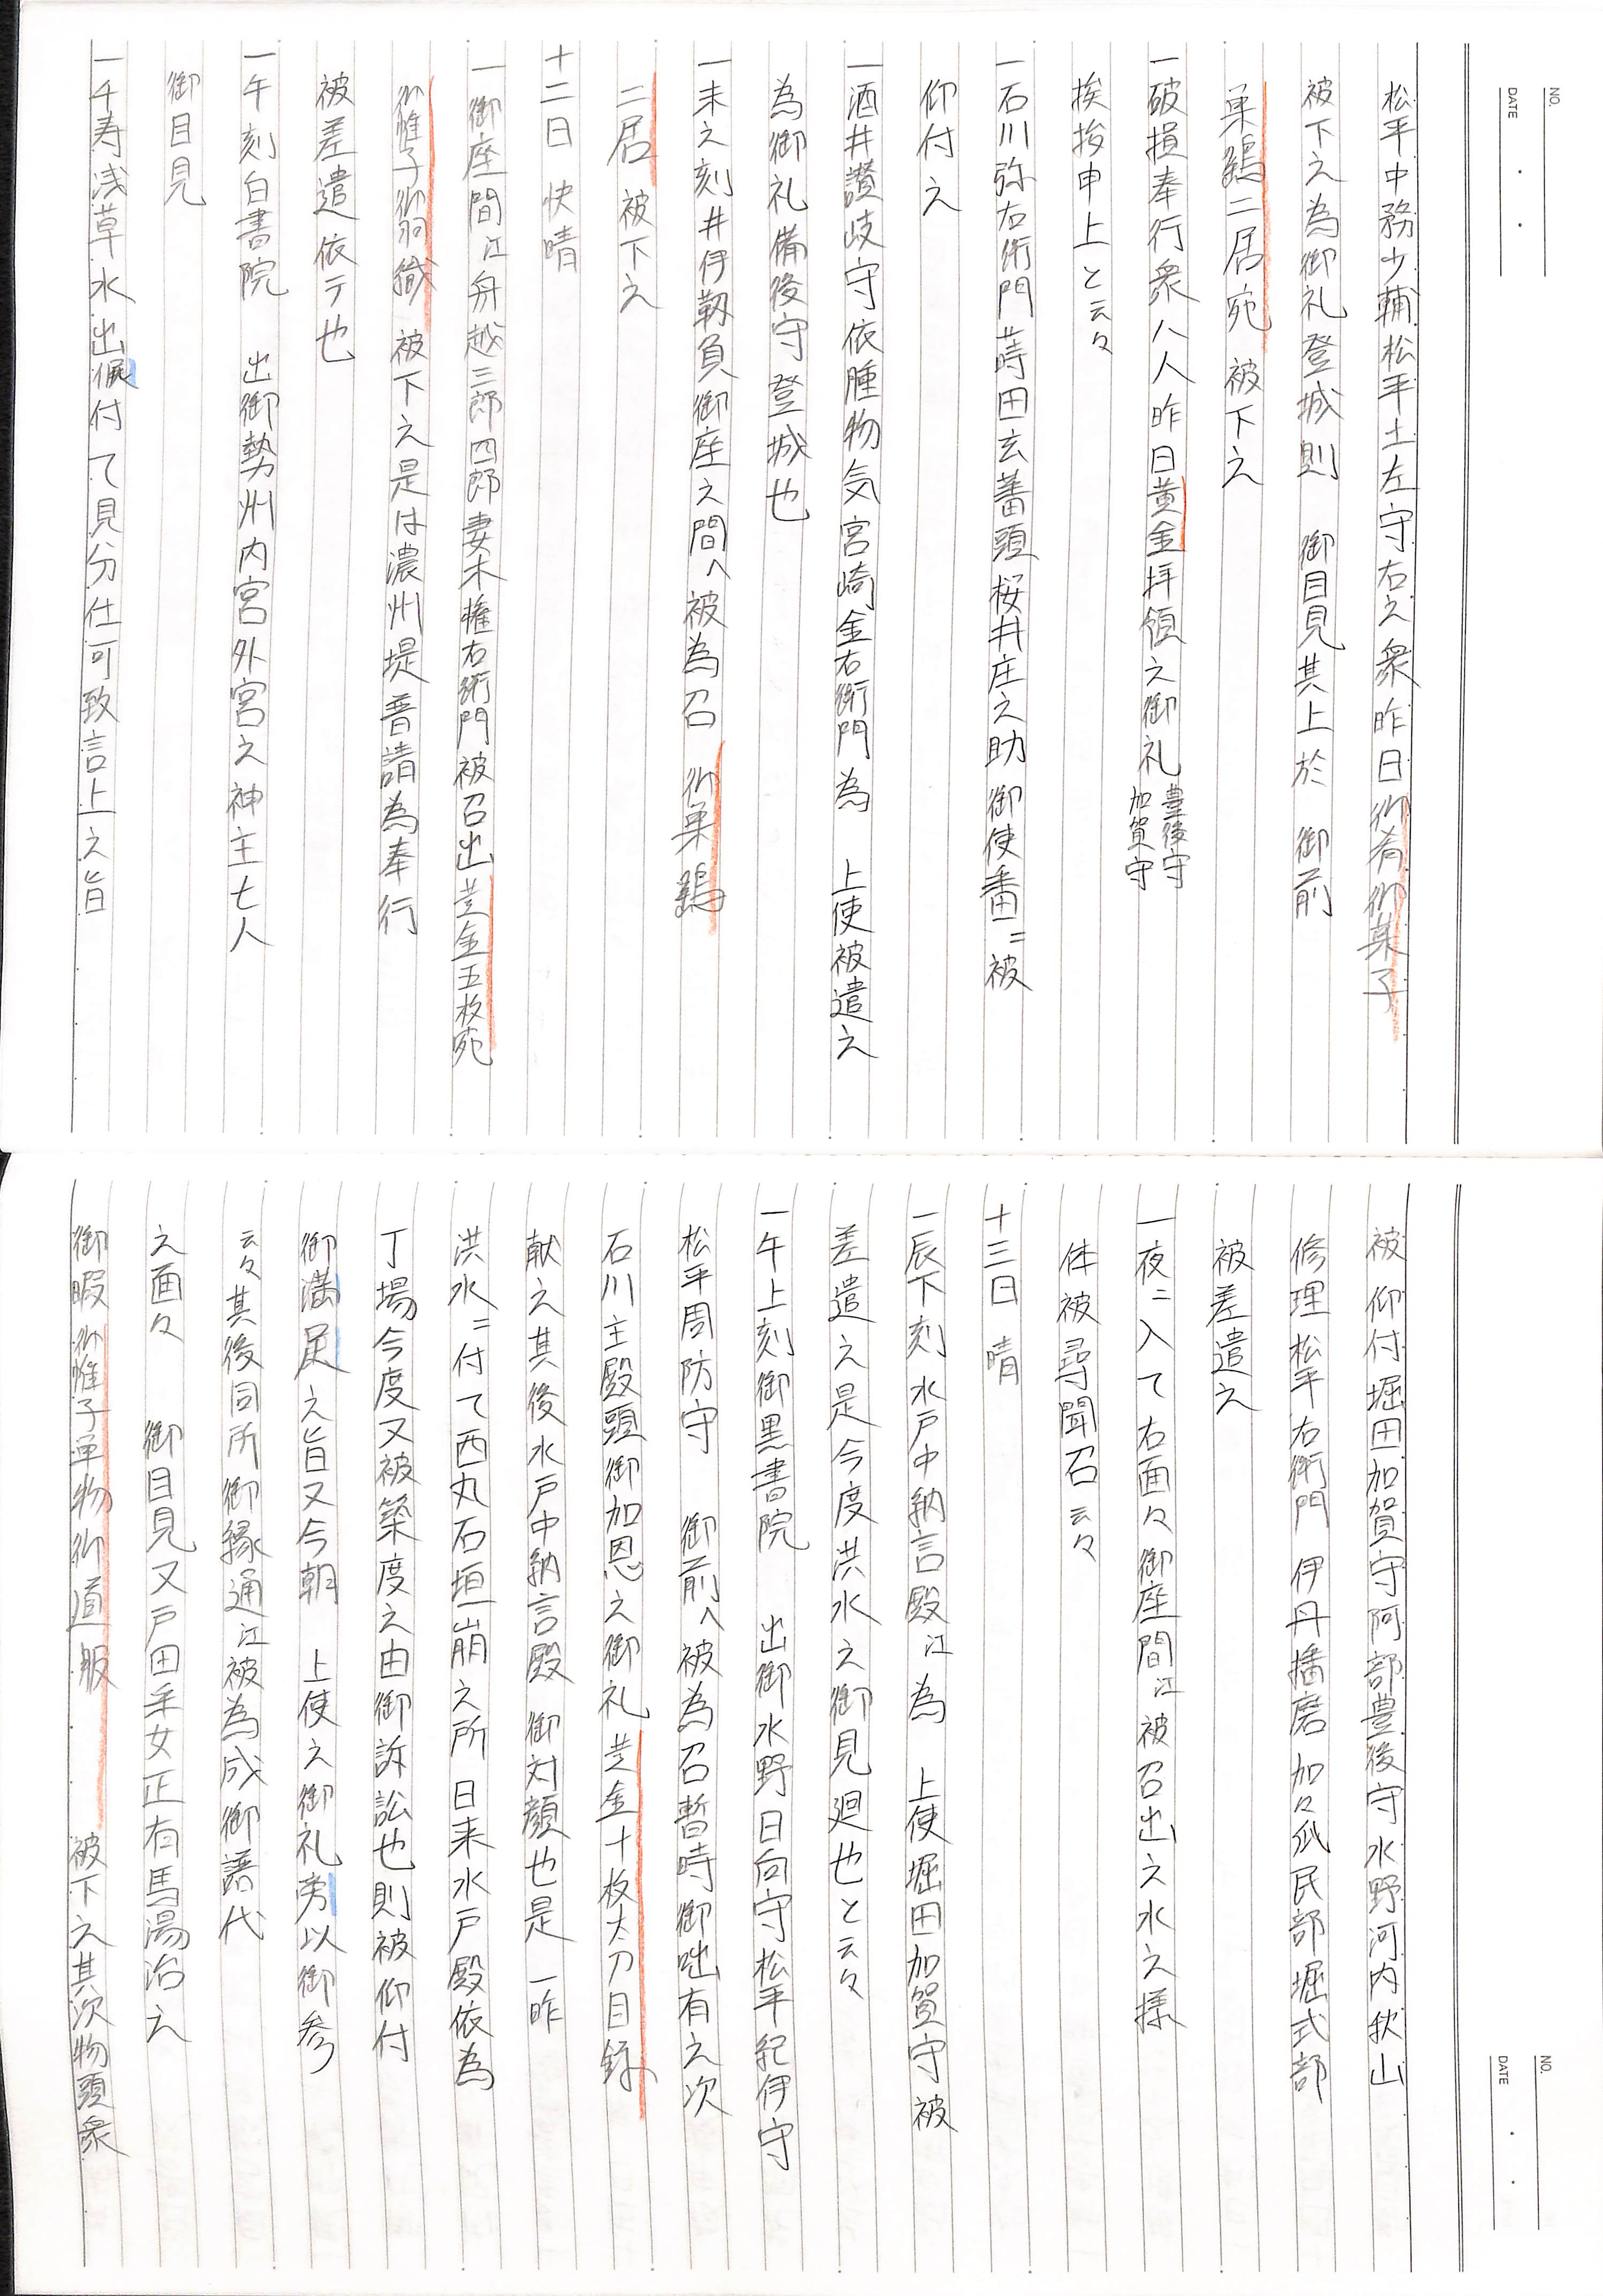 NO.
DATE
松平中務少輔松平土左守右之衆昨日御肴御菓子
被下之為御礼登城則　御目見其上於　御前
巣鷂二居宛　被下之
一破損奉行衆八人昨日黄金拝領之御礼 豊後守 加賀守
挨拶申上と云々
一石川弥右衛門蒔田玄蕃頭桜井庄之助御使番ニ被
仰付之
一酒井讃岐守依腫物気宮崎金右衛門為　上使被遣之
為御礼備後守登城也
一未之刻井伊靱負御座之間へ被為召　御巣鷂
二居　被下之
十二日　快晴
一御座間江舟越三郎四郎妻木権右衛門被召出黄金五枚宛
御帷子御羽織　被下之是は濃州堤普請為奉行
被差遣依テ也
一午刻白書院　出御勢州内宮外宮之神主七人
御目見
一千寿浅草水出候付て見分仕可致言上之旨
NO.
DATE
被　仰付堀田加賀守阿部豊後守水野河内秋山
修理松平右衛門　伊丹播磨加々爪民部堀式部
被差遣之
一夜ニ入て右面々御座間江被召出之水之様
体被尋聞召云々
十三日　晴
一辰下刻水戸中納言殿江為　上使堀田加賀守被
差遣之是今度洪水之御見廻也と云々
一午上刻御黒書院　出御水野日向守松平紀伊守
松平周防守　御前へ被為召暫時御咄有之次
石川主殿頭御加恩之御礼黄金十枚太刀目録
献之其後水戸中納言殿　御対顔也是　一昨
洪水ニ付て西丸石垣崩之所　日来水戸殿依為
丁場今度又被築度之由御訴訟也則被仰付
御満足之旨又今朝　上使之御礼旁以御参
云々其後同所御縁通江被為成御譜代
之面々　御目見又戸田采女正有馬湯治之
御暇　御帷子単物御道服　被下之其次物頭衆